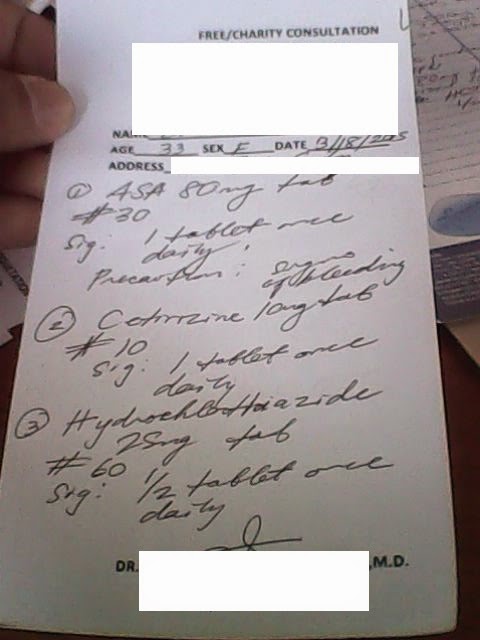 FREE/CHARITY CONSULTATION
AGE 33 SEX F DATE 3/18/2015
ADDRESS
① ASA 80mg tab
#30
Sig: 1 tablet once
daily
Precaution: signs
of bleeding
② Cetirizine 10mg tab
#10
Sig: 1 tablet once
daily
③ Hydrochlorothiazide
25mg tab
#60
Sig: 1/2 tablet once
daily
DR. ,M.D.